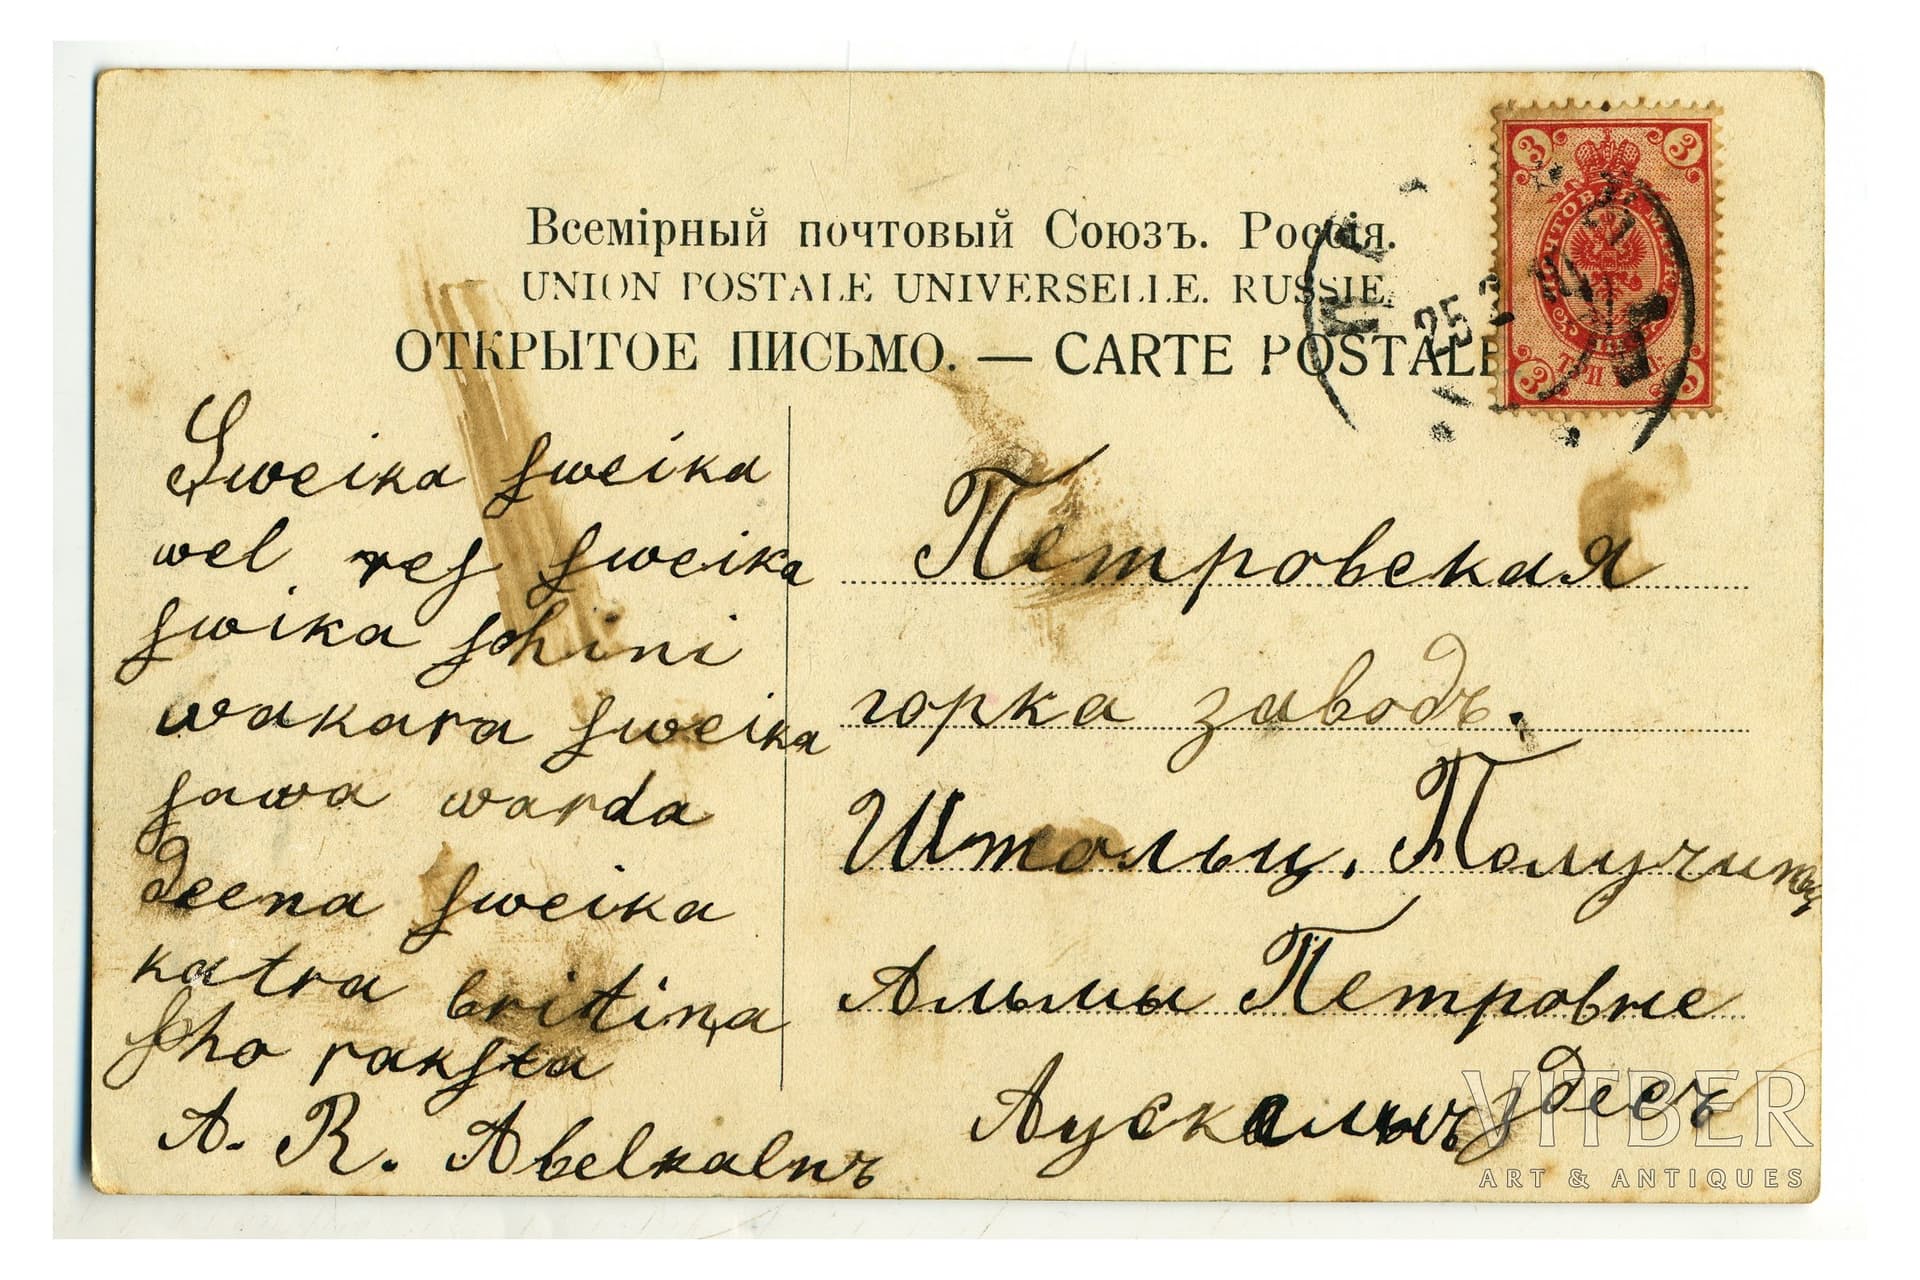 Всемірный почтовый Союзъ. Россія.
UNION POSTALE UNIVERSELLE. RUSSIE.
ОТКРЫТОЕ ПИСЬМО. — CARTE POSTALE
3 3
ПОЧТОВАЯ МАРКА
3 3
25
Sweika ſweika
wel reſ ſweika
ſwika ſchini
wakara ſweika
ſawa warda
deena ſweika
katra britiņa
Scho rakſta
A. R. Abelkalnъ
Петровская
горка заводъ.
Штольц. Получить
Альмы Петровне
Аускалнъ здесь
VITBER
ART & ANTIQUES